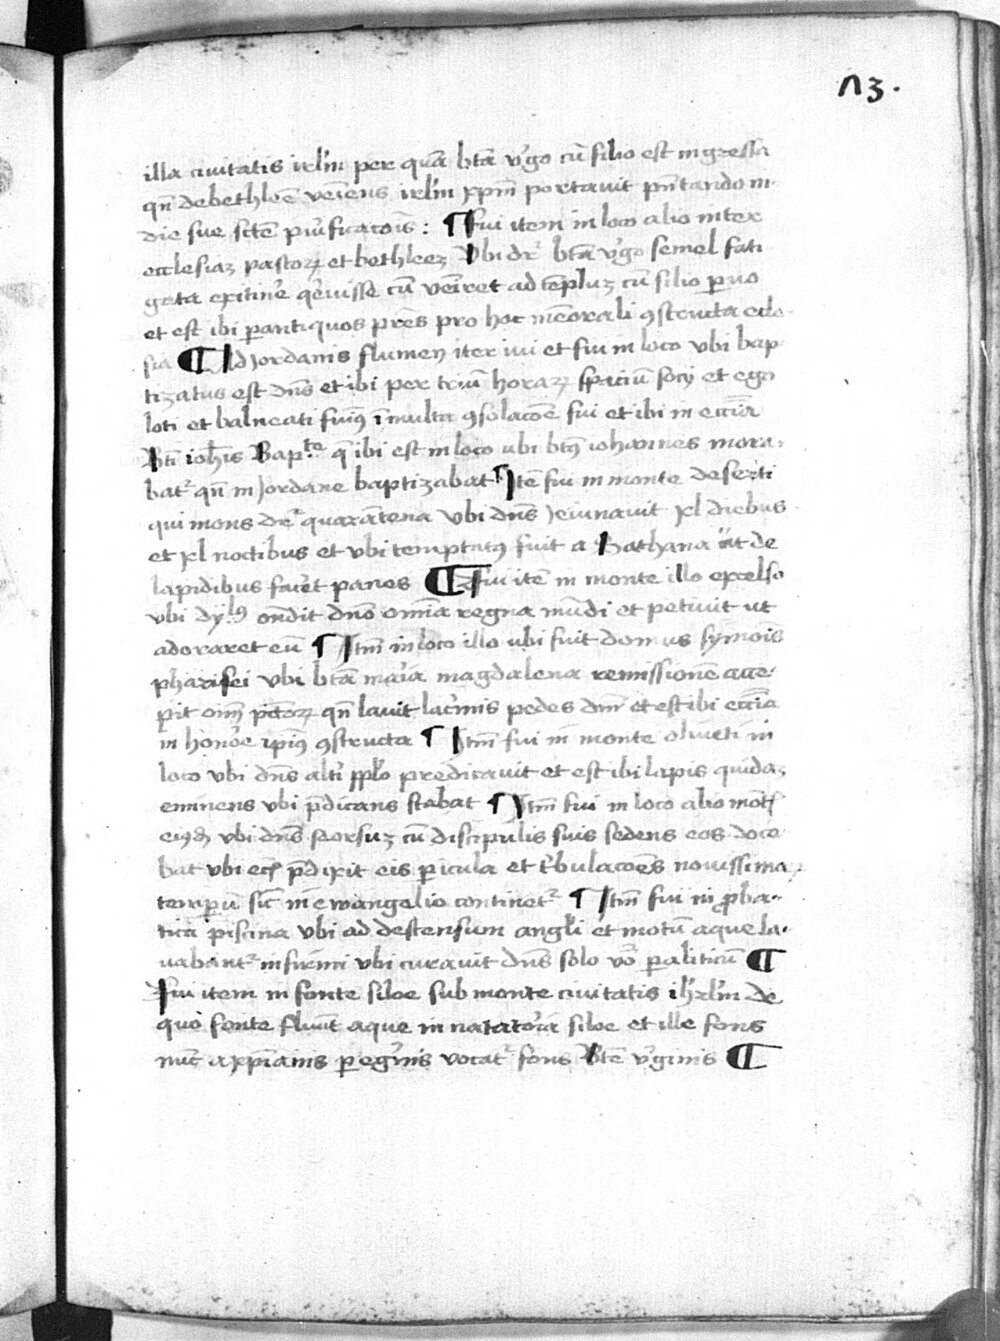 n3.
illa ciuitatis irl̄m per quā btā v̓go cū filio est ingressa
qn̄ de bethleē veniens irl̄m xp̄m portauit p̄ntando in
die sue scē̄ pu̓ificacōis : ¶ ffui item in loco alio inter
ecclesiaꝫ pastoꝝ et bethleeꝫ Vbi dr̄ btā v̓go semel fati
gata ex itin̓e q̓euisse cū veīret ad tēpluꝫ cū filio paruo
et est ibi ꝑ antiquos prēs pro hoc mēorali ꝯstructa ecle
sia ¶ Ad Jordanis flumen iter iui et fui in loco vbi bap
tizatus est dn̄s et ibi per triū horaꝝ spaciū socij et ego
loti et balneati fuimꝰ ī multa ꝯsolacōe fui et ibi in ecc̄ia
Bti ioh̄is Bapᵗᵉ q̄ ibi est in loco ubi btꝰ iohannes mora
batʳ qn̄ in Jordane baptizabat ¶ Itē fui in monte deserti
qui mons drʳ quarātena vbi dn̄s Jeiunauit xl diebus
et xl noctibus et vbi temptatꝰ fuit a Sathana ut de
lapidibus fac̓et panes ¶ ffui itē in monte illo excelso
vbi dyᵇlꝰ ondit dn̄o om̄ia regna mūdi et petiuit ut
adoraret eū ¶ Itm̄ in loco illo ubi fuit domus symoīs
pharisei vbi btā mar̓ia magdalena remissionē acce
pit om̄ pctōꝝ qn̄ lauit lac̓mis pedes dn̄i et est ibi ecc̄ia
in hono̓e ipiꝰ ꝯstructa ¶ Itm̄ fui in monte oliueti in
loco vbi dn̄s alti ppl̄o predicauit et est ibi lapis quidaꝫ
eminens vbi p̄dicans stabat ¶ Itm̄ fui in loco alio mont̄
eiꝰdē vbi dn̄s seorsuꝫ cū discipulis suis sedens eos doce
bat vbi ec̄ p̄dixit eis pericula et t̓bulacōes nouissimaꝝ
tempꝝ sic̄ in ewangelio continetʳ ¶ Itm̄ fui in proba
tica piscina vbi ad descensum angl̄i et motū aque la
uabantʳ infirmi vbi curauit dn̄s solo vo̓ paliticū ¶
ffui item in fonte siloe sub monte ciuitatis ihrl̄m de
quo fonte fluūt aque in natato̓ia siloe et ille fons
nūc a xp̄ianis pegr̓inis vocatʳ fons Btē v̓ginis ¶